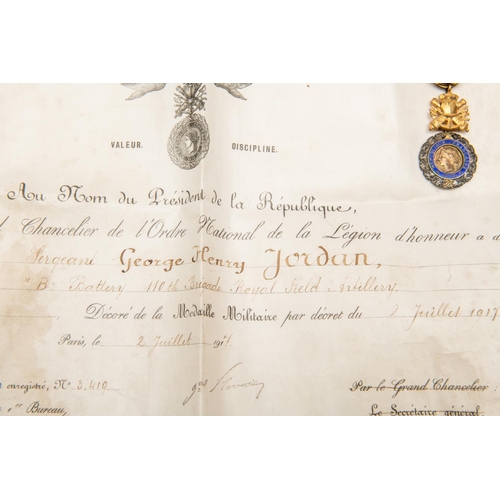 VALEUR. DISCIPLINE.
Au Nom du Président de la République,
Chancelier de l'Ordre National de la Légion d'honneur a d
Sergeant George Henry Jordan,
"B" Battery 110th Brigade Royal Field Artillery
Décoré de la Médaille Militaire par décret du 2 Juillet 1917
Paris, le 2 Juillet 191
enregistré, N° 3.410
Par le Grand Chancelier:
1er Bureau,
Le Secrétaire général: